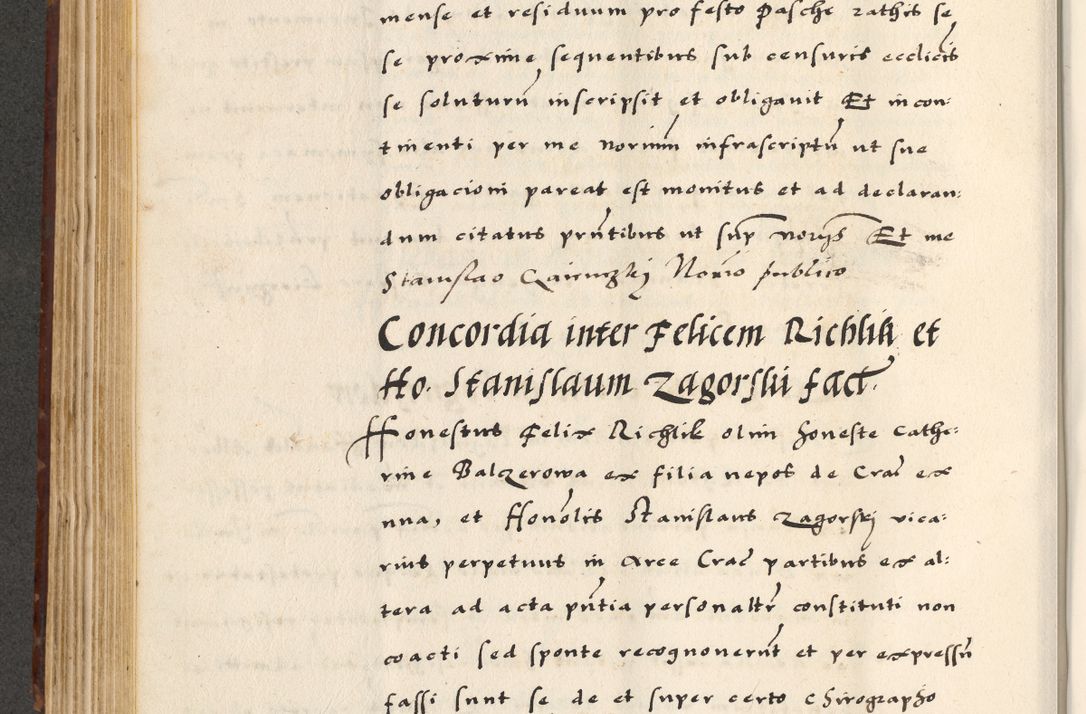 mense et residuum pro festo Pasche rathis se
se proxime sequentibus sub censuris ecclicis
se soluturū inscripsit et obligavit Et incon:
tinenti per me Noriūm infrascriptū ut sue
obligacioni pareat est monitus et ad declaran:
dum citatus prntibus ut sup norijs Et me
Stanislao Notrio publico
Concordia inter Felicem Richlik et
Ho. Stanislaum Zagorskii fact.
Honestus Felix Richlik olim honeste Cathe:
rine Balczerowa ex filia nepos de Crac ex
una, et Honolis Stanislaus Zagorskj vica:
rius perpetuus in Arce Crac partibus ex al:
tera ad acta pntia personaltr constituti non
coacti sed sponte recognoverūt et per expressū
fassi sunt se de et super certo chirographo